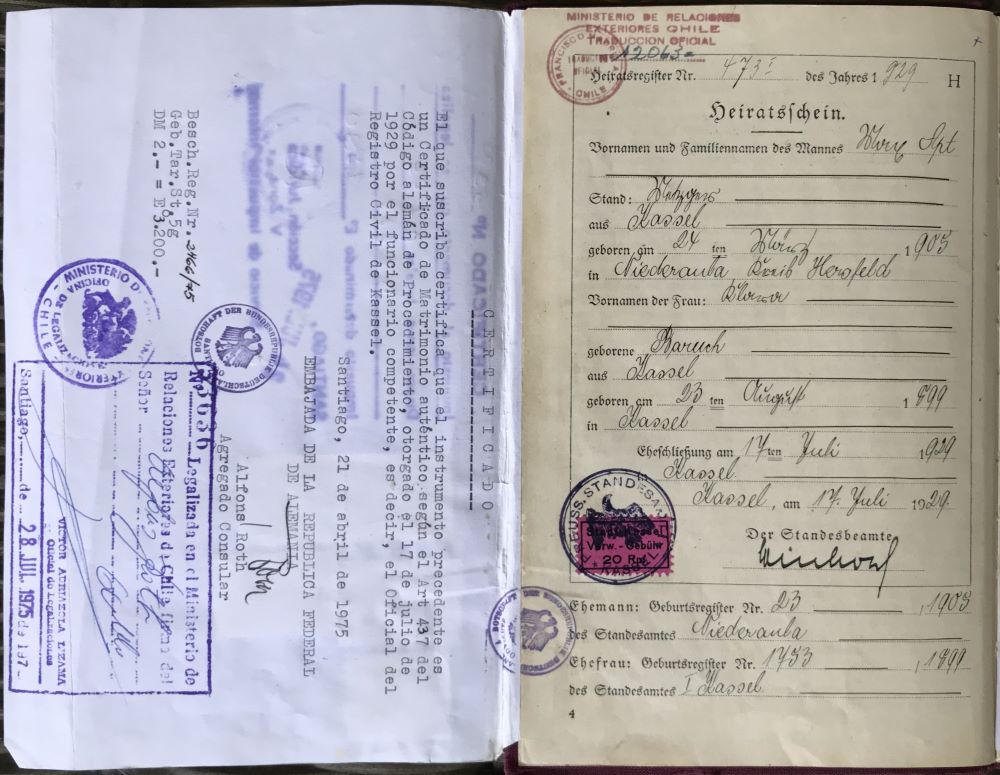 CERTIFICADO
El que suscribe certifica que el instrumento precedente es
un Certificado de Matrimonio auténtico según el Art 437 del
Código alemán de Procedimiento, otorgado el 17 de julio de
1929 por el funcionario competente, es decir, el Oficial del
Registro Civil de Kassel.
Santiago, 21 de abril de 1975
EMBAJADA DE LA REPUBLICA FEDERAL
DE ALEMANIA
Alfons Roth
Agregado Consular
Besch.Reg.Nr. 2466/75
Geb.Tar.St.5g
DM 2.- = Eº3.200.-
MINISTERIO DE
EXTERIORES
OFICINA DE LEGALIZ
CHILE
BOTSCHAFT DER BUNDESREPUBLIK DEUTSCHLAND
SANTIAGO
Nº 3636 Legalizada en el Ministerio de
Relaciones Exteriores de Chile firma del
Señor Alfons Roth
Santiago, de 28 JUL 1975 de 197
VICTOR AURIAZOLA LIZAMA
Oficial de Legalizaciones
MINISTERIO DE RELACIONES
EXTERIORES CHILE
TRADUCCION OFICIAL
Nº 12063=
FRANCISCO
TRADUCTOR
OFICIAL
Heiratsregister Nr. 473 I des Jahres 1929 H
Heiratsschein.
Vornamen und Familiennamen des Mannes Max Apt
Stand: Metzger
aus Kassel
geboren am 24 ten März 1905
in Niederaula Kreis Hersfeld
Vornamen der Frau: Klara
geborene Baruch
aus Kassel
geboren am 23 ten August 1899
in Kassel
Eheschließung am 17ten Juli 1929
Kassel
Kassel, am 17. Juli 1929.
Der Standesbeamte
PREUSS. STANDESAMT
KASSEL
Stadt Kassel
Verw.-Gebühr
20 Rpf.
BOTSCHAFT DER BUNDESREPUBLIK DEUTSCHLAND
Ehemann: Geburtsregister Nr. 23, 1905
des Standesamtes Niederaula
Ehefrau: Geburtsregister Nr. 1753, 1899
des Standesamtes I Kassel
4